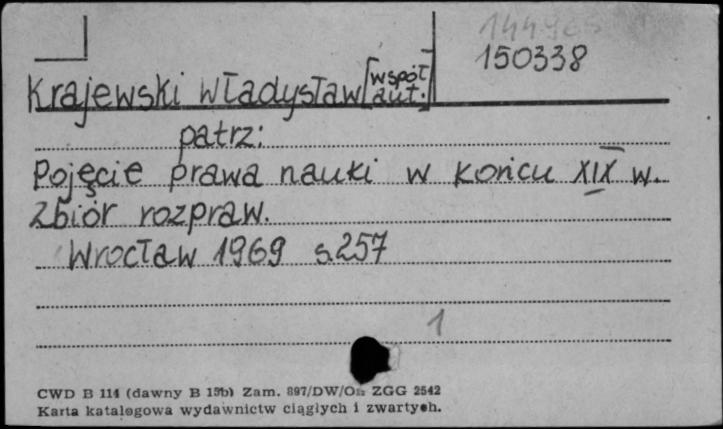 150338
Krajewski Władysław [współ
aut.]
patrz:
Pojęcie prawa nauki w końcu XIX w.
Zbiór rozpraw.
Wrocław 1969 s.257
1
CWD B 114 (dawny B 15b) Zam. 897/DW/Oz ZGG 2542
Karta katalogowa wydawnictw ciągłych i zwartych.